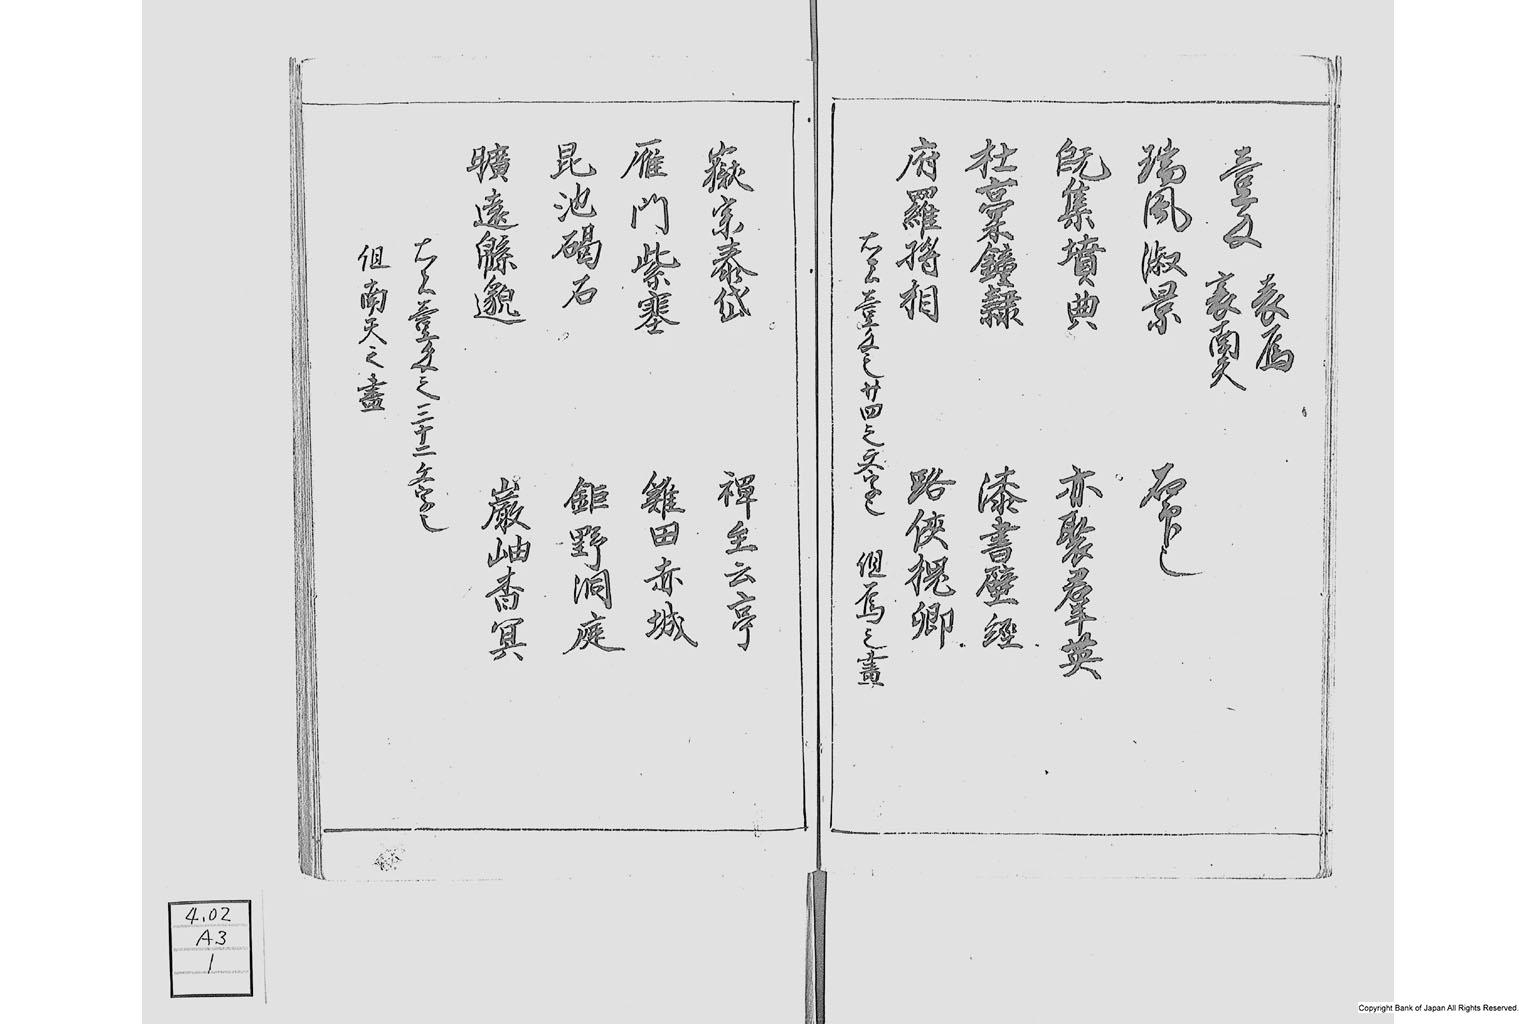 臺文 表鳥
裏南天
瑞凤淑景
既集墳典 亦聚羣英
杜稾鍾隸 漆書壁經
府羅将相 路俠槐卿
右者臺文之廿四之文字也 但鳥之畫
嶽宗泰岱 禅主云亭
雁門紫塞 雞田赤城
昆池碣石 鉅野洞庭
曠遠緜邈 巌岫杳冥
右者臺文之三十二文字也
但南天之畫
4.02
A3
1
Copyright Bank of Japan All Rights Reserved.